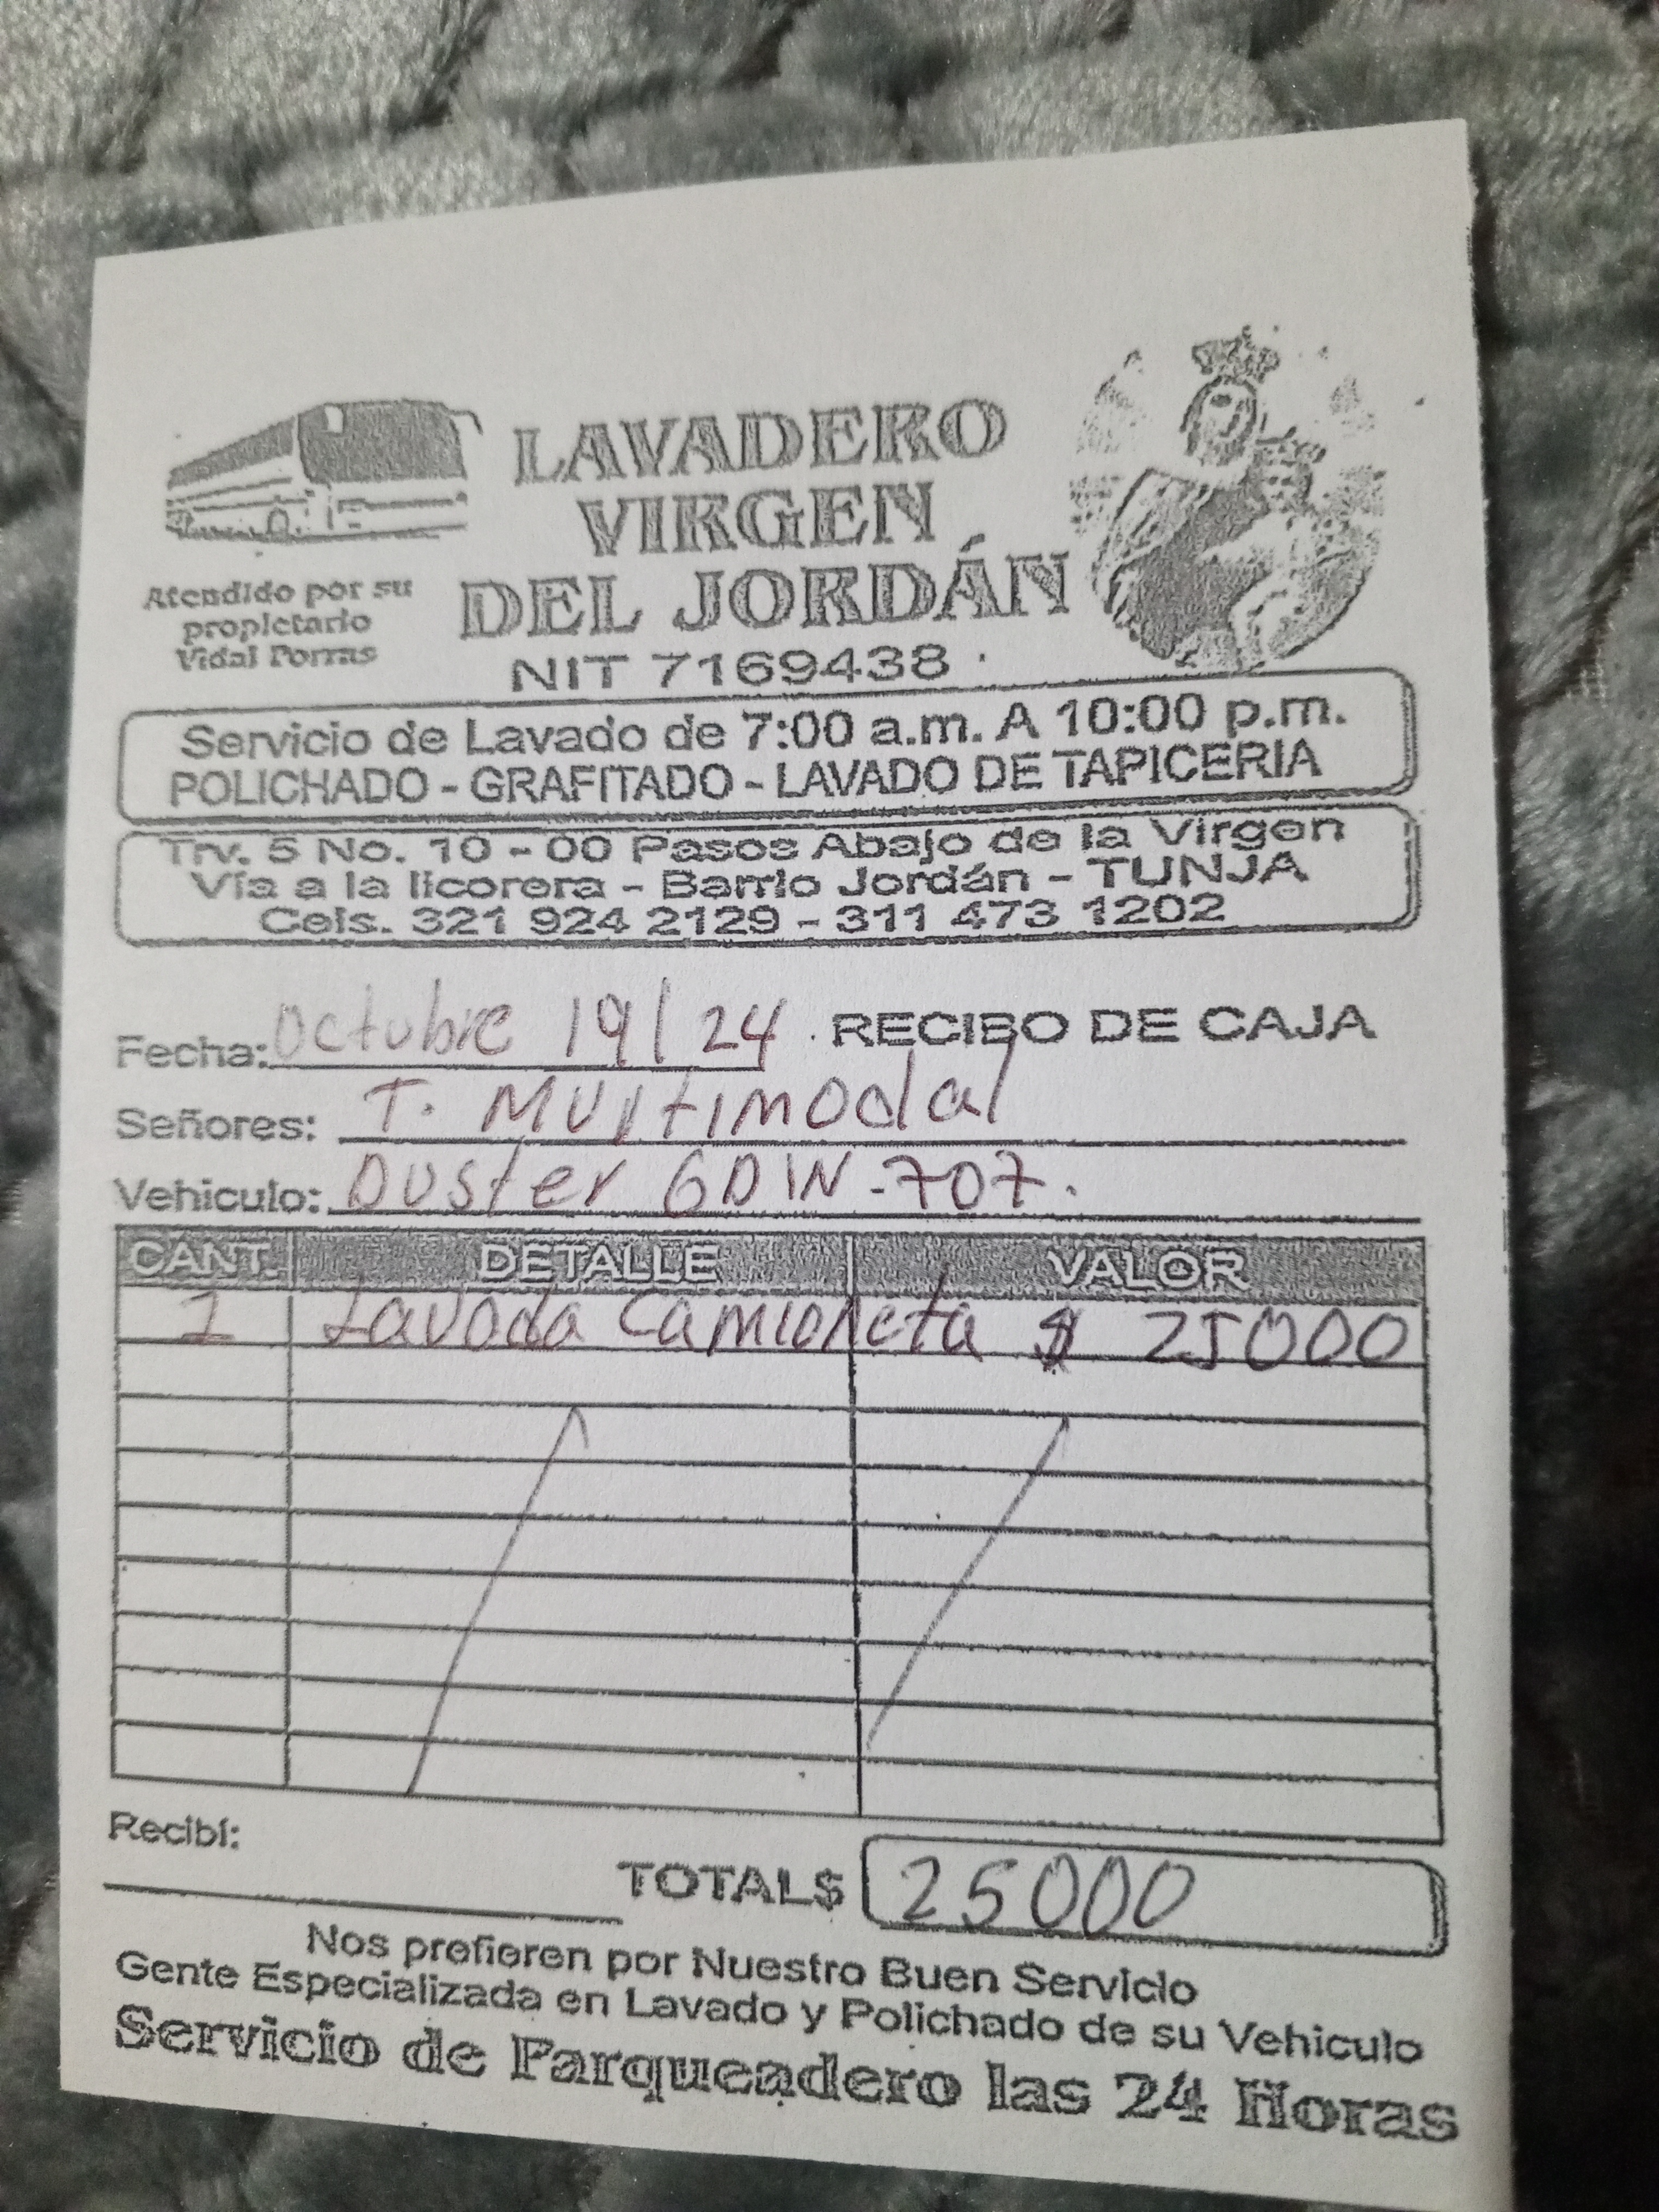 LAVADERO
VIRGEN
DEL JORDÁN
NIT 7169438
Atendido por su
propietario
Vidal Porras
Servicio de Lavado de 7:00 a.m. A 10:00 p.m.
POLICHADO - GRAFITADO - LAVADO DE TAPICERIA
Trv. 5 No. 10 - 00 Pasos Abajo de la Virgen
Vía a la licorera - Barrio Jordán - TUNJA
Cels. 321 924 2129 - 311 473 1202
Fecha: Octubre 19/24 RECIBO DE CAJA
Señores: T. Multimodal
Vehiculo: Duster GDW-707.
CANT. DETALLE VALOR
1 Lavada Camioneta $ 25000
Recibí:
TOTAL$ 25000
Nos prefieren por Nuestro Buen Servicio
Gente Especializada en Lavado y Polichado de su Vehiculo
Servicio de Parqueadero las 24 Horas